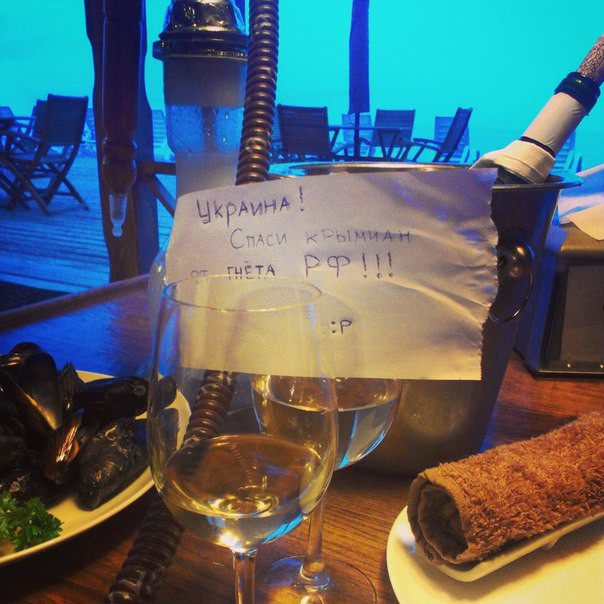 Украина!
Спаси крымчан
от гнёта РФ!!!
:P